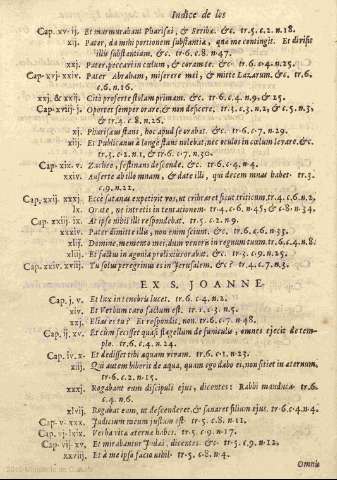 Indice de los
Cap. xv. ij. Et marmurabant Pharisai, & Scribæ. &c. tr.5.c.2.n.18.
xij. Pater, da mihi portionem substantiæ, quæ me contingit. Et divisit
illis substantiam, &c. tr.6.c.8.n.47.
xxj. Pater, peccavi in cælum, & coram te. &c. tr.6.c.4.n.25.
Cap. xvj. xxiv. Pater Abraham, miserere mei, & mitte Lazarum. &c. tr.6.
c.6.n.16.
xxij. & xxiij. Cito proferte stolam primam. &c. tr.6.c.4.n.9, & 25.
Cap. xviij. j. Oportet semper orare, & non deficere, tr.3.c.3.n.2, & c.5.n.3,
& tr.4.c.8.n.26.
xj. Pharisæus stans, hoc apud se orabat. &c. tr.6.c.7.n.29.
xiij. Et Publicanus à longè stans nolebat, nec oculos in cælum levare. &c.
tr.3.c.2.n.1, & tr.6.c.7.n.30.
Cap. xix. v. Zachæe, festinans descende, &c. tr.6.c.4.n.4.
xxiv. Auferte ab illo mnam, & date illi, qui decem mnas habet. tr.3.
c.9.n.21.
Cap. xxij. xxxj. Ecce satanas expetivit vos, ut cribraret sicut triticum, tr.4.c.6.n.2,
lx. Orate, ne intretis in tentationem. tr.4.c.6.n.45, & c.8.n.34.
Cap. xxiij. ix. At ipse nihil illi respondebat. tr.5.c.2.n.9.
xxxiv. Pater dimitte illis, non enim sciunt. &c. tr.6.c.6.n.33.
xlij. Domine, memento mei, dum veneris in regnum tuum. tr.6.c.6.n.8.
xliij. Et factus in agonia prolixius orabat. &c. tr.3.c.9.n.25.
Cap. xxiv. xviij. Tu solus peregrinus es in Jerusalem, &c? tr.4.c.7.n.3.
EX S. JOANNE.
Cap. j. v. Et lux in tenebris lucet. tr.6.c.4.n.2.
xiv. Et Verbum caro factum est. tr.1.c.3.n.5.
xxj. Elias es tu? Et respondit, non. tr.6.c.7.n.48.
Cap. ij. xv. Et cùm fecisset quasi flagellum de funiculis, omnes ejecit de tem-
plo. tr.6.c.4.n.24.
Cap. iv. x. Et dedisset tibi aquam vivam. tr.6.c.1.n.23.
xiij. Qui autem biberit de aqua, quam ego dabo ei, non sitiet in æternum,
tr.6.c.2.n.15.
xxxj. Rogabant eum discipuli ejus, dicentes: Rabbi manduca. tr.6.
c.4.n.6.
xlvij. Rogabat eum, ut descenderet, & sanaret filium ejus. tr.6.c.4.n.4.
Cap. v. xxx. Judicium meum justum est. tr.5.c.8.n.11.
Cap. vj. lxix. Verba vitæ æternæ habes. tr.5.c.9.n.17.
Cap. vij. xv. Et mirabantur Judæi, dicentes. &c. tr.5.c.9.n.12,
xxviij. Et à me ipso facio nihil. tr.5.c.8.n.4.
Omnis